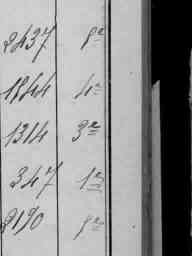 2437 8e
1844 4e
1314 3e
347 1e
2190 8e